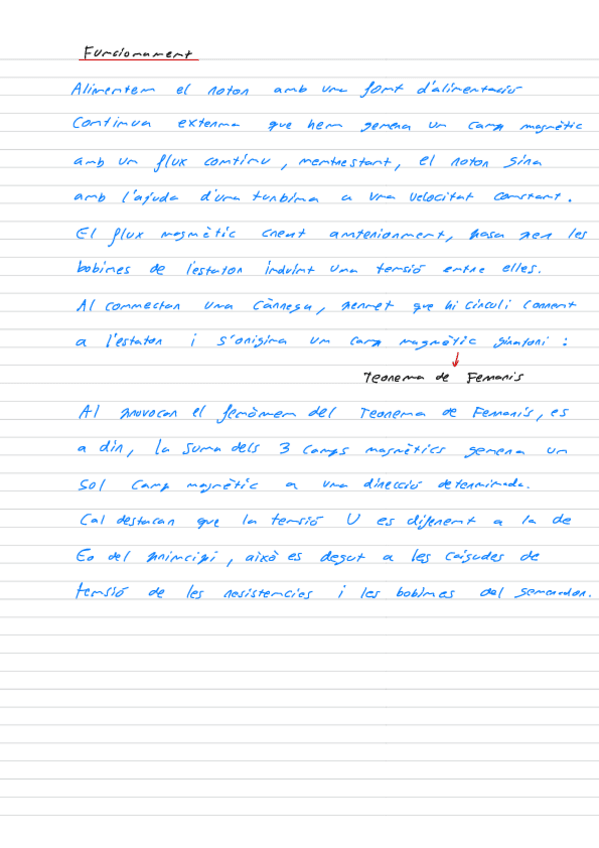 Funcionament
Alimentem el rotor amb una font d'alimentació
continua externa que hem genera un camp magnètic
amb un flux continu, mentrestant, el rotor gira
amb l'ajuda d'una turbina a una velocitat constant.
El flux magnètic creat anteriorment, pasa per les
bobines de l'estator induint una tensió entre elles.
Al connectar una Càrrega, permet que hi circuli corrent
a l'estator i s'origina un camp magnètic giratori:
Teorema de Ferraris
Al provocar el fenòmen del Teorema de Ferraris, es
a dir, la suma dels 3 camps magnètics genera un
sol camp magnètic a una direcció determinada.
Cal destacar que la tensió U es diferent a la de
Eo del principi, això es degut a les caigudes de
tensió de les resistencies i les bobines del generador.